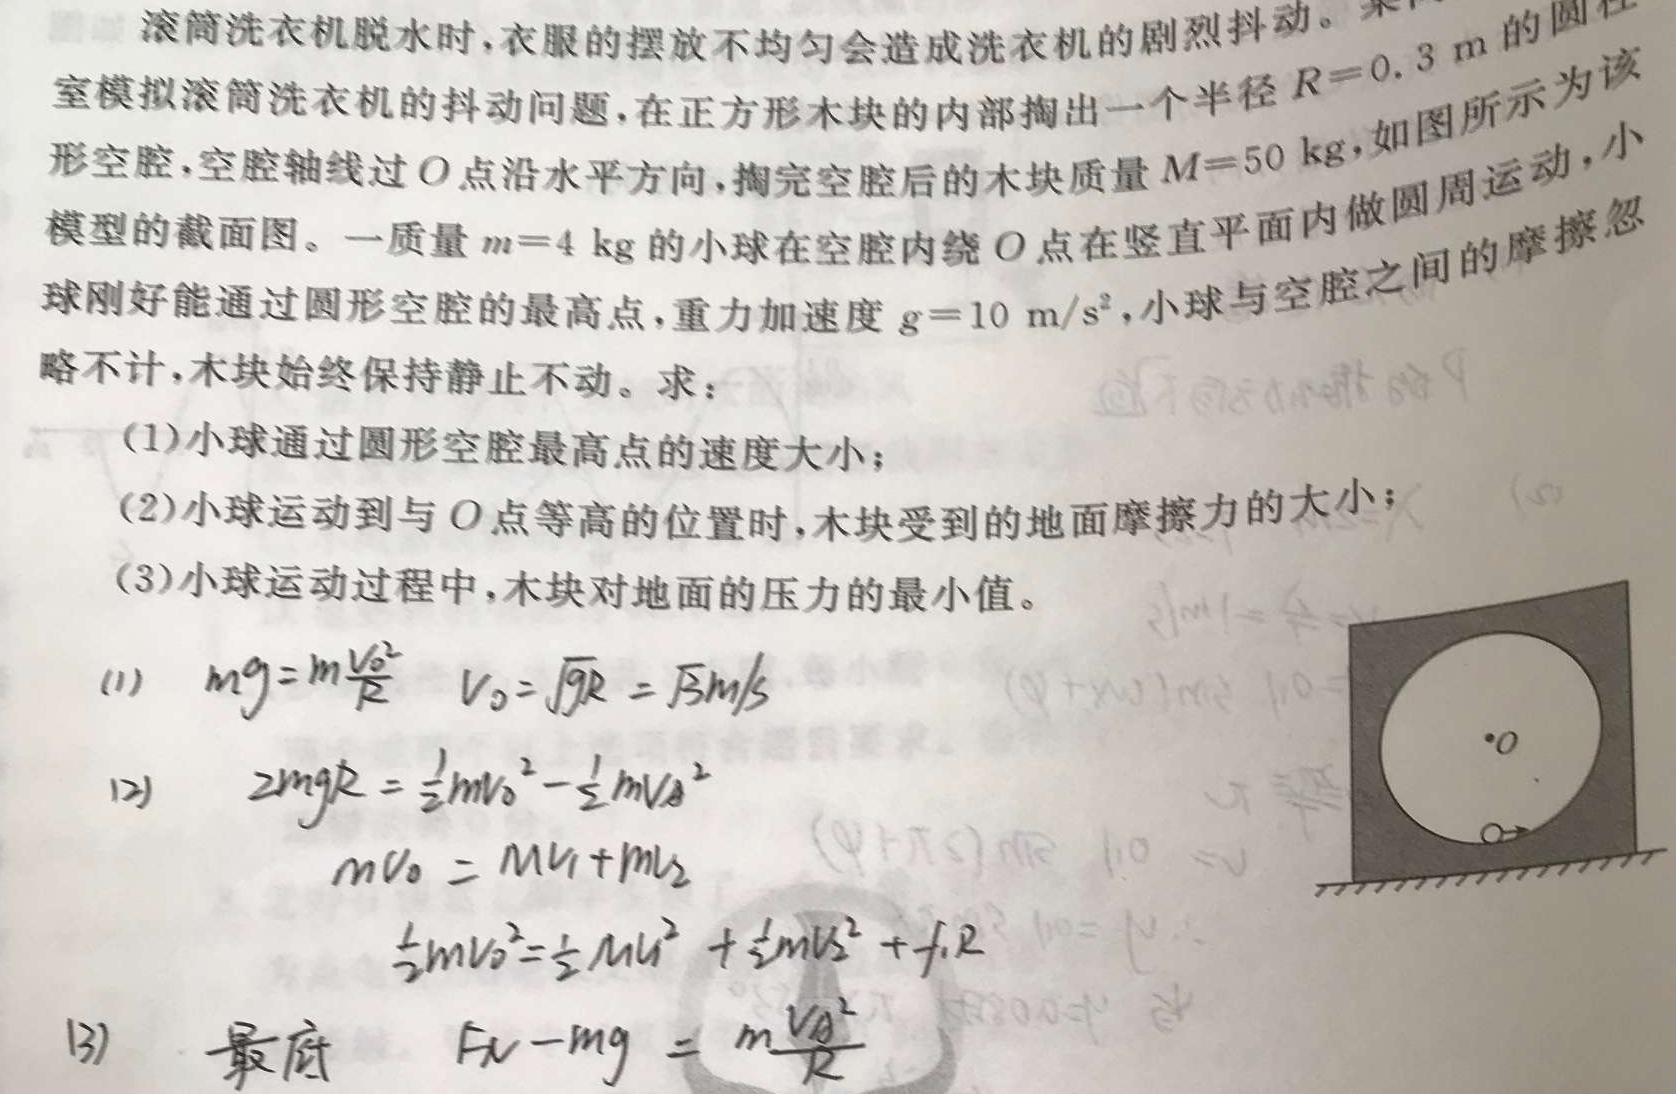 滚筒洗衣机脱水时,衣服的摆放不均匀会造成洗衣机的剧烈抖动。
室模拟滚筒洗衣机的抖动问题,在正方形木块的内部掏出一个半径 R=0.3 m 的圆柱
形空腔,空腔轴线过 O 点沿水平方向,掏完空腔后的木块质量 M=50 kg,如图所示为该
模型的截面图。一质量 m=4 kg 的小球在空腔内绕 O 点在竖直平面内做圆周运动,小
球刚好能通过圆形空腔的最高点,重力加速度 g=10 m/s²,小球与空腔之间的摩擦忽
略不计,木块始终保持静止不动。求:
(1)小球通过圆形空腔最高点的速度大小;
(2)小球运动到与 O 点等高的位置时,木块受到的地面摩擦力的大小;
(3)小球运动过程中,木块对地面的压力的最小值。
(1) mg=m v₀²/R v₀=√gR =√3m/s
(2) 2mgR = ½mv₀² - ½mvA²
mv₀ = Mv₁+mv₂
½mv₀²=½Mv₁² +½mv₂² +f₁R
(3) 最底 FN-mg = m vA²/R
•O